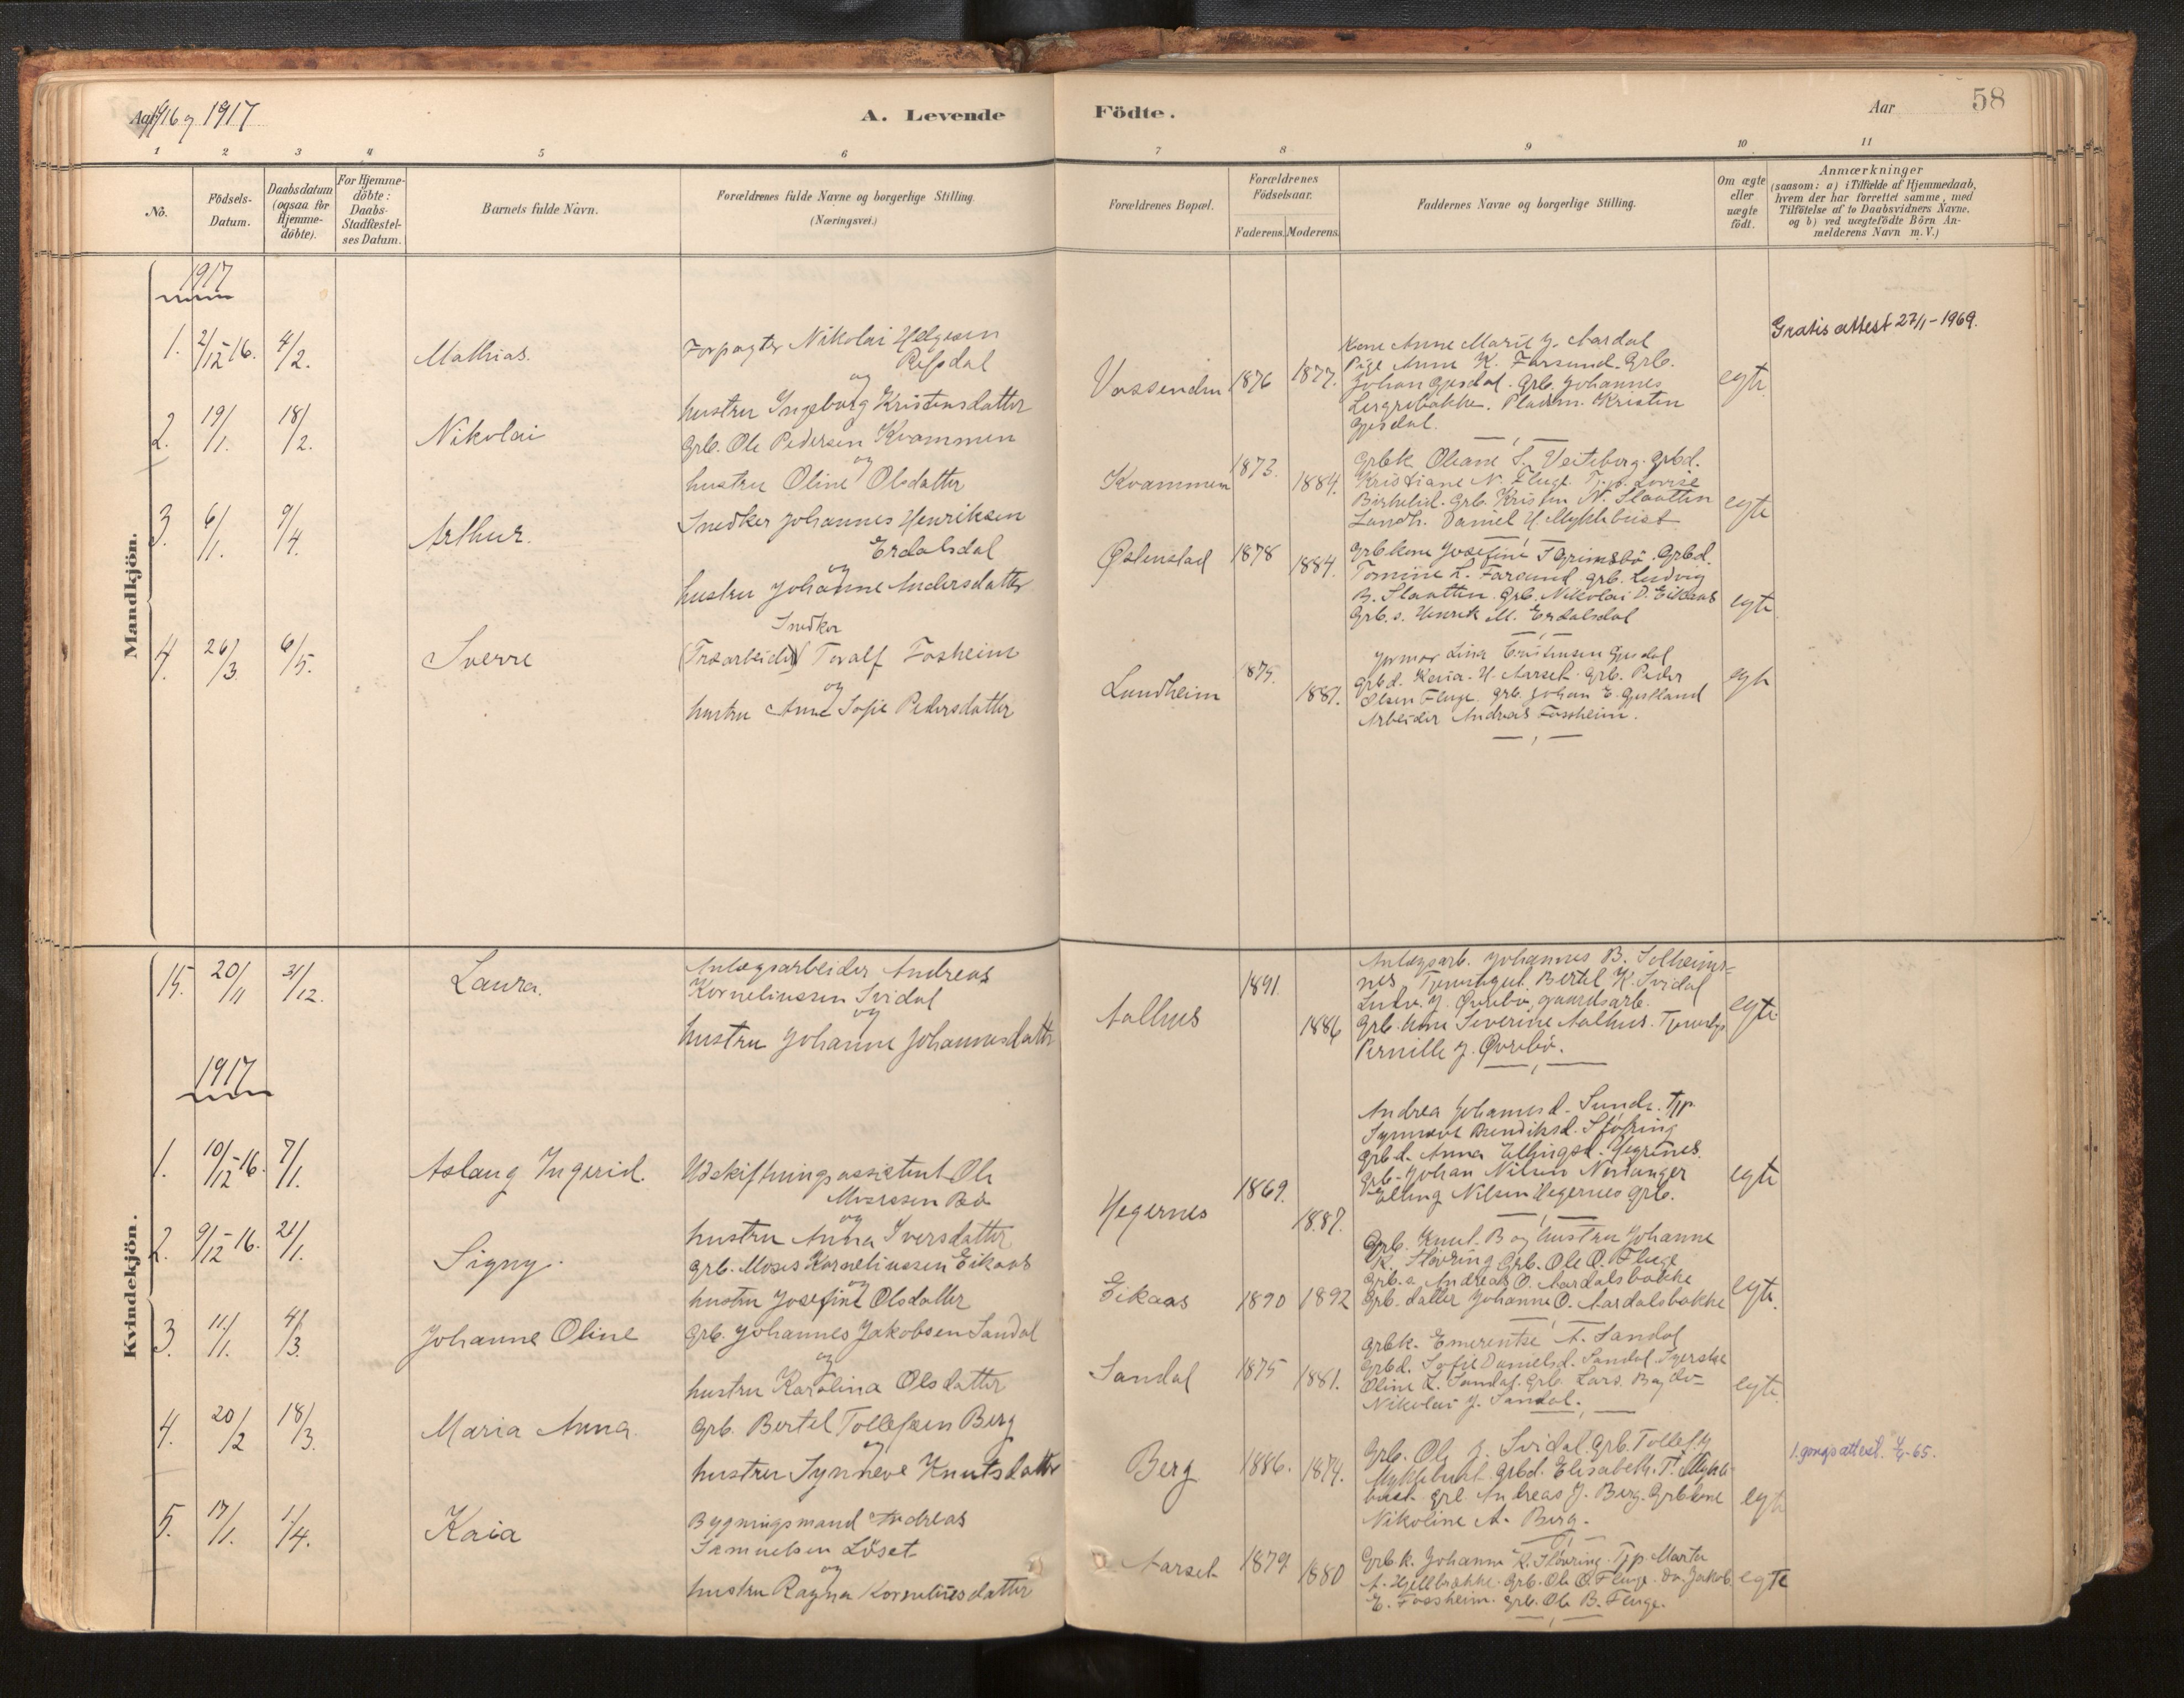 Aar 1916 og 1917
A. Levende Födte.
Aar
58
1 2 3 4 5 6 7 8 9 10 11
No.
Födsels-Datum.
Daabsdatum (ogsaa for Hjemme-döbte).
For Hjemme-döbte: Daabs-Stadfæstel-ses Datum.
Barnets fulde Navn.
Forældrenes fulde Navne og borgerlige Stilling.
(Næringsvei.)
Forældrenes Bopæl.
Forældrenes Födselsaar.
Faderens. Moderens.
Faddernes Navne og borgerlige Stilling.
Om ægte eller uægte födt.
Anmærkninger
(saasom: a) i Tilfælde af Hjemmedaab,
hvem der har forrettet samme, med
Tilföielse af to Daabsvidners Navne.
og b) ved uægtefödte Börn An-
melderens Navn m. V.)
Mandkjön.
1917
1. 2/12-16. 4/2. Mathias.
Forpagter Nikolai Helgesen
Refsdal
og
hustru Ingeborg Kristensdatter
Vassenden 1876 1877.
Kone Anne Marie J. Aardal
Pige Anne K. Farsund. Grb.
Johan Gjesdal. Grb. Johannes
Lergrebakke. Pladsm. Kristen
Gjesdal.
egte
Gratis attest 27/1-1969.
2. 19/1. 18/2. Nikolai
Grb. Ole Pedersen Kvammen
og
hustru Oline Olsdatter
Kvammen 1873. 1884.
Grbk. Oleane S. Veiteberg. Grbd.
Kristiane N. Fluge. Tjp. Lovise
Birkelid. Grb. Kristen N. Slaatten
Landh. Daniel H Myklebust
egte
3. 6/1. 9/4. Arthur.
Snedker Johannes Henriksen
Erdalsdal
og
hustru Johanne Andersdatter
Østenstad 1878 1884.
Grbkone Josefine T Grimsbö. Grbd.
Tomine L. Farsund. Grb. Ludvig
B. Slaatten. Grb. Nikolai D. Eikaas
Grb. s. Henrik M. Erdalsdal
egte
4. 26/3. 6/5. Sverre
Snedker
(Træarbeider) Toralf Fosheim
og
hustru Anne Sofie Pedersdatter
Lundheim 1875. 1881.
Jormor Lina Kristensen Gjesdal
Grbd. Kaia H. Aarset. Grb. Peder
Olsen Fluge. Grb. Johan E. Gjelland
Arbeider Andreas Fossheim.
egte
Kvindekjön.
15. 20/11 31/12. Laura.
Anlægsarbeider Andreas
Korneliussen Svidal
og
hustru Johanne Johannesdatter
Aalhus 1891. 1886
Anlægsarb. Johannes B. Solheims-
nes, Tjenestgut. Bertel K. Svidal
Ludv. J. Øvrebø, gaardsarb.
Grb. kone Severine Aalhus.
Pernille J. Øvrebö.
egte
1917
1. 10/12-16. 7/1. Aslaug Ingerid.
Udskiftningsassistent Ole
Mosessen Bö
og
hustru Anna Iversdatter
Hegernes 1869. 1887.
Andrea Johannesd. Sunde. Tjp.
Synneve Bendiksd. Støfring
Grbd. Anna Ellingsd. Hegrenes.
Grb. Johan Nilsen
Elling Nilsen Hegernes Grb.
egte
2. 9/12-16. 21/1. Signy.
Grb. Moses Korneliussen Eikaas
og
hustru Josefine Olsdatter
Eikaas 1890 1892
Grb. Knut. B og hustru Johanne
K. Støvring Grb. Ole O. Fluge
Grb. s. Andreas O. Aardalsbakke
Grb. datter Johanne O. Aardalsbakke
egte.
3. 11/1. 4/3. Johanne Oline
Grb. Johannes Jakobsen Sandal
og
hustru Karolina Olsdatter
Sandal 1875 1881.
Grbk. Emerentse A. Sandal
Grbd. Sofie Danielsd. Sandal. Syerske
Oline L. Sandal. Grb. Lars.
Nikolai J. Sandal.
egte.
4. 20/2 18/3. Maria Anna.
Grb. Bertel Tollefsen Berg
og
hustru Synneve Knutsdatter
Berg 1886. 1874.
Grb. Ole J. Svidal. Grb. Tollef.
Myklebust. Grbd. Elisabeth. T. Mykle-
bust. Grb. Andreas J. Berg. Grbkone
Nikoline A. Berg.
egte
1. gongs attest. -65.
5. 17/1. 1/4. Kaia
Bygningsmand Andreas
Samuelsen Löset
og
hustru Ragna Korneliusdatter
Aarset 1879 1880
Grb. k. Johanne K. Støvring. Tjp. Marta
A. Hjellbrekke. Grb. Ole O. Fluge. Do. Jakob
E. Fossheim. Grb. Ole B. Fluge.
egte